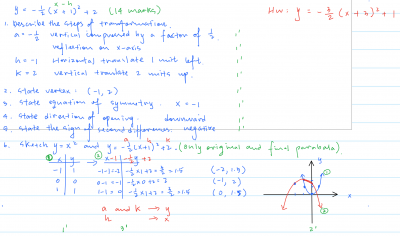 x-h
y = -½(x+1)² + 2 (14 marks)
Hw: y = -3/2 (x+3)² + 1
1. Describe the steps of transformations.
a = -½ vertical compressed by a factor of ½. 1'
reflection on x-axis 1'
h = -1 Horizontal translate 1 unit left. 1'
k = 2 vertical translate 2 units up. 1'
2. State vertex: (-1, 2) 1'
3. State equation of symmetry. x = -1 1'
4. State direction of opening. downward 1'
5. State the sign of second difference. negative 1'
a h k
6. Sketch y = x² and y = -½(x+1)² + 2. (only original and final parabola)
① x y ② x-1 -½y+2
-1 1 -1-1=-2 -½×1+2=3/2=1.5 (-2, 1.5)
0 0 0-1=-1 -½×0+2=2 (-1, 2)
1 1 1-1=0 -½×1+2=3/2=1.5 (0, 1.5)
y ①
x
②
a and k → y
h → x
1' 3' 2'